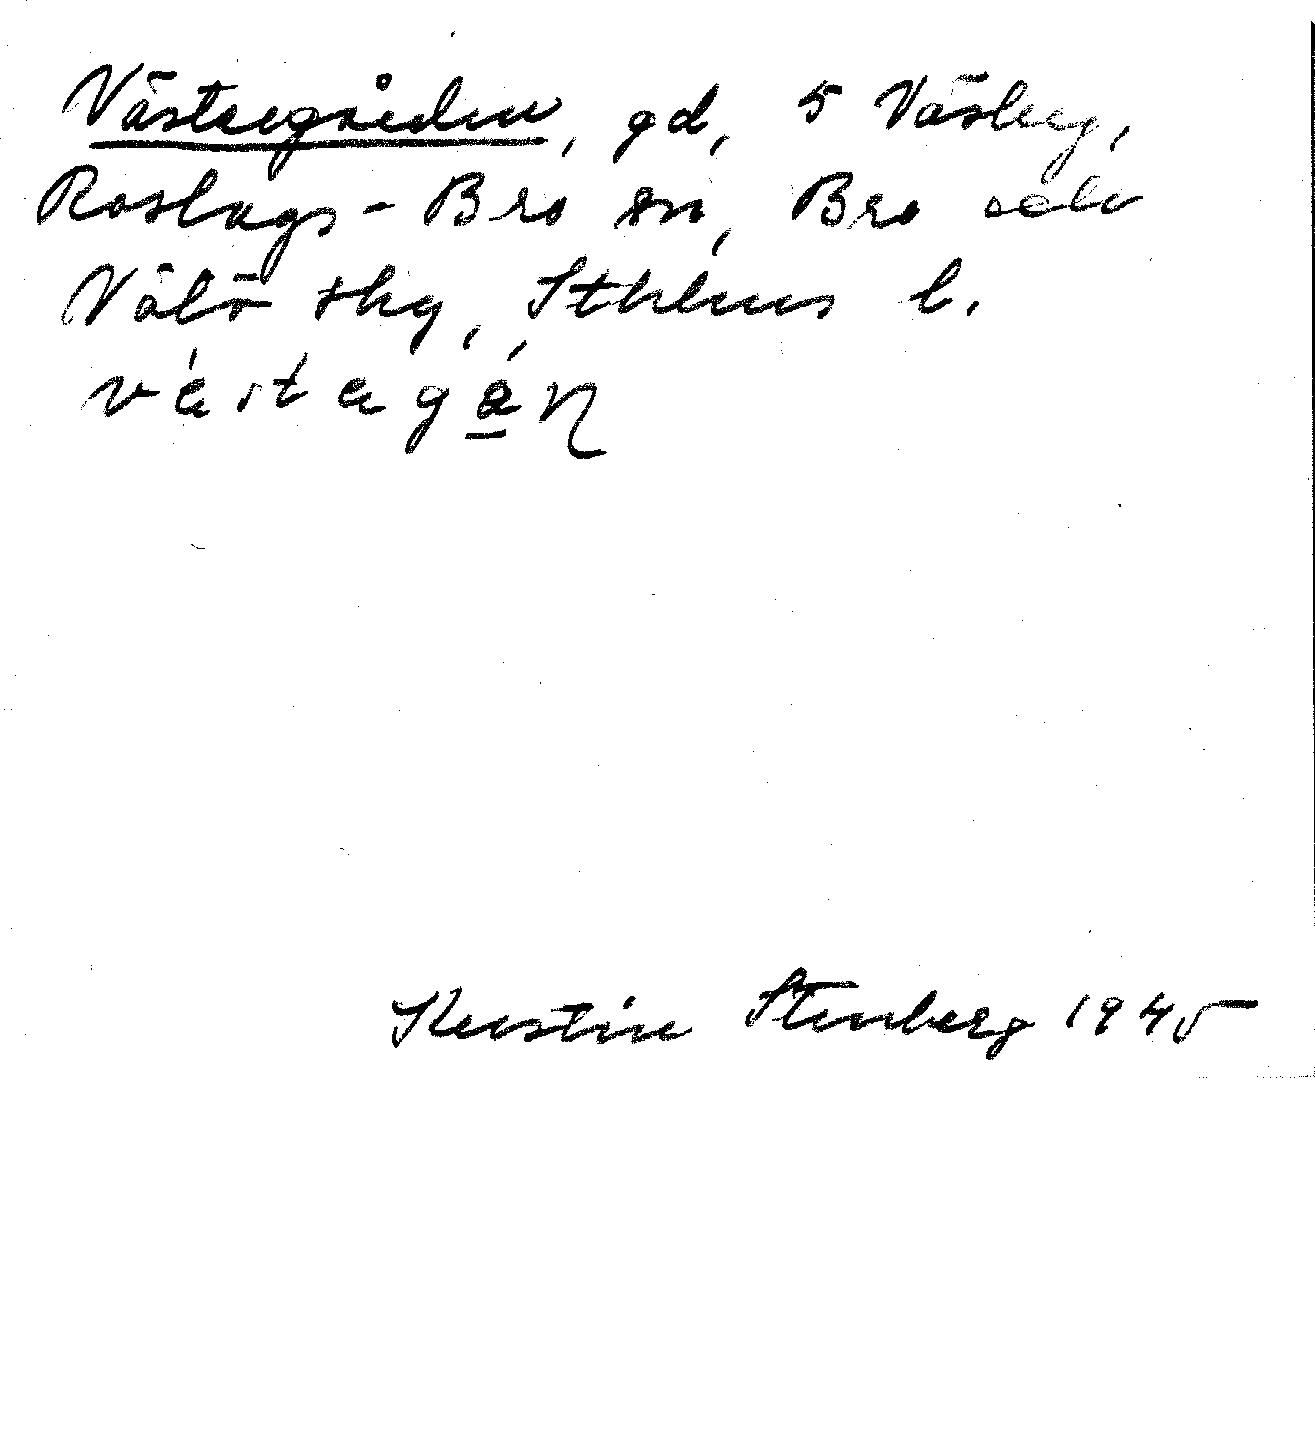 Västergården, gd, 5 Väsby,
Roslags-Bro sn, Bro och
Vätö skg, Sthlms l.
västagån
Kerstin Stenberg 1945